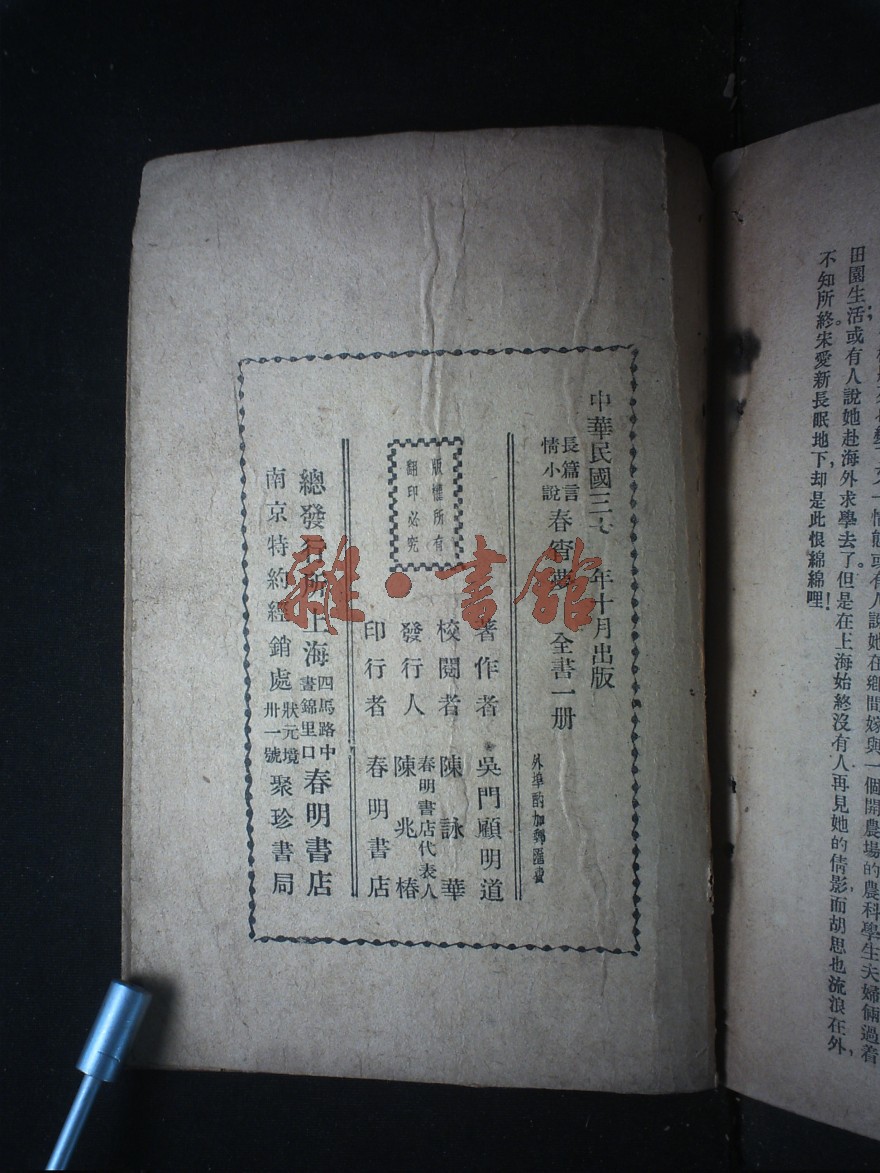 田園生活或有人說她赴海外求學去了。但是在上海始終沒有人再見她的倩影而胡思也流浪在外，
不知所終宋愛新長眠地下，却是此恨綿綿哩！
中華民國三十 年十月出版
長篇言情小說 春宵夢 全書一册
外埠酌加郵匯費
著作者 吳門顧明道
校閱者 陳詠華
發行人 春明書店代表人 陳兆椿
印行者 春明書店
版權所有
翻印必究
總發行所 上海四馬路中晝錦里口 春明書店
南京特約經銷處 狀元境卅一號 聚珍書局
雜·書館